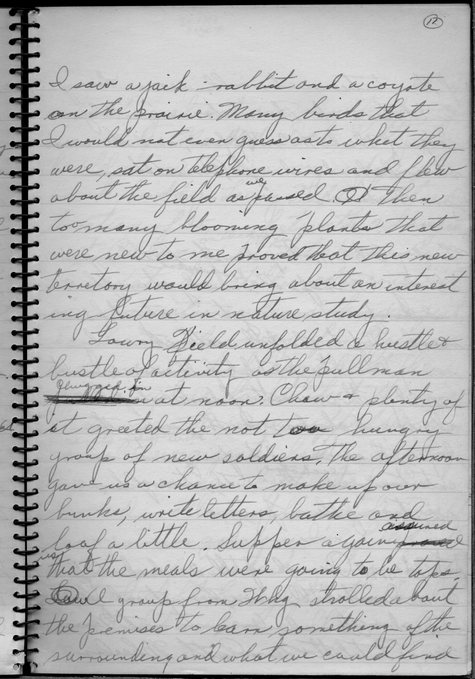 12
I saw a jack rabbit and a coyote
on the prairie. Many birds that
I would not even guess as to what they
were, sat on telephone wires and flew
about the field as we passed. Then
too many blooming plants that
were new to me proved that this new
territory would bring about an interest
ing future in nature study.
Lowry Field unfolded a hustle &
bustle of activity as the pullman
plugged in
at noon. Chow & plenty of
it greeted the not too hungry
group of new soldiers. The afternoon
gave us a chance to make up our
bunks, write letters, bathe and
loaf a little. Supper again assured
us that the meals were going to be tops.
group from strolled about
the premises to learn something of the
surrounding and what we could find